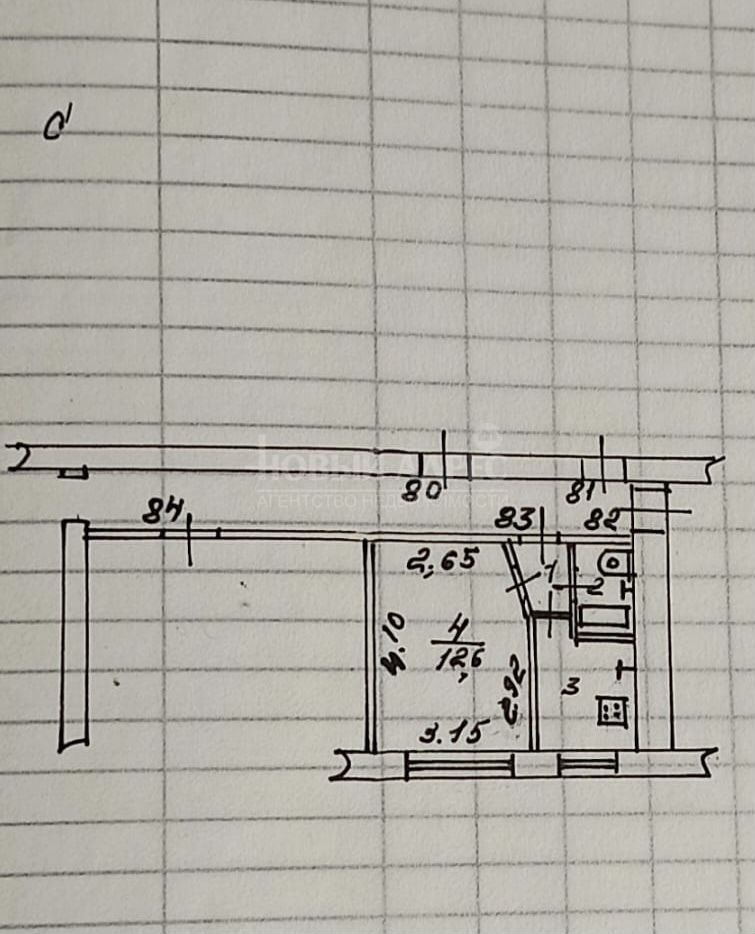 НОВЫЙ АДРЕС
АГЕНТСТВО НЕДВИЖИМОСТИ
80
81
84
83
82
2,65
1
2
4.10
4
12,6
2.92
3
3.15